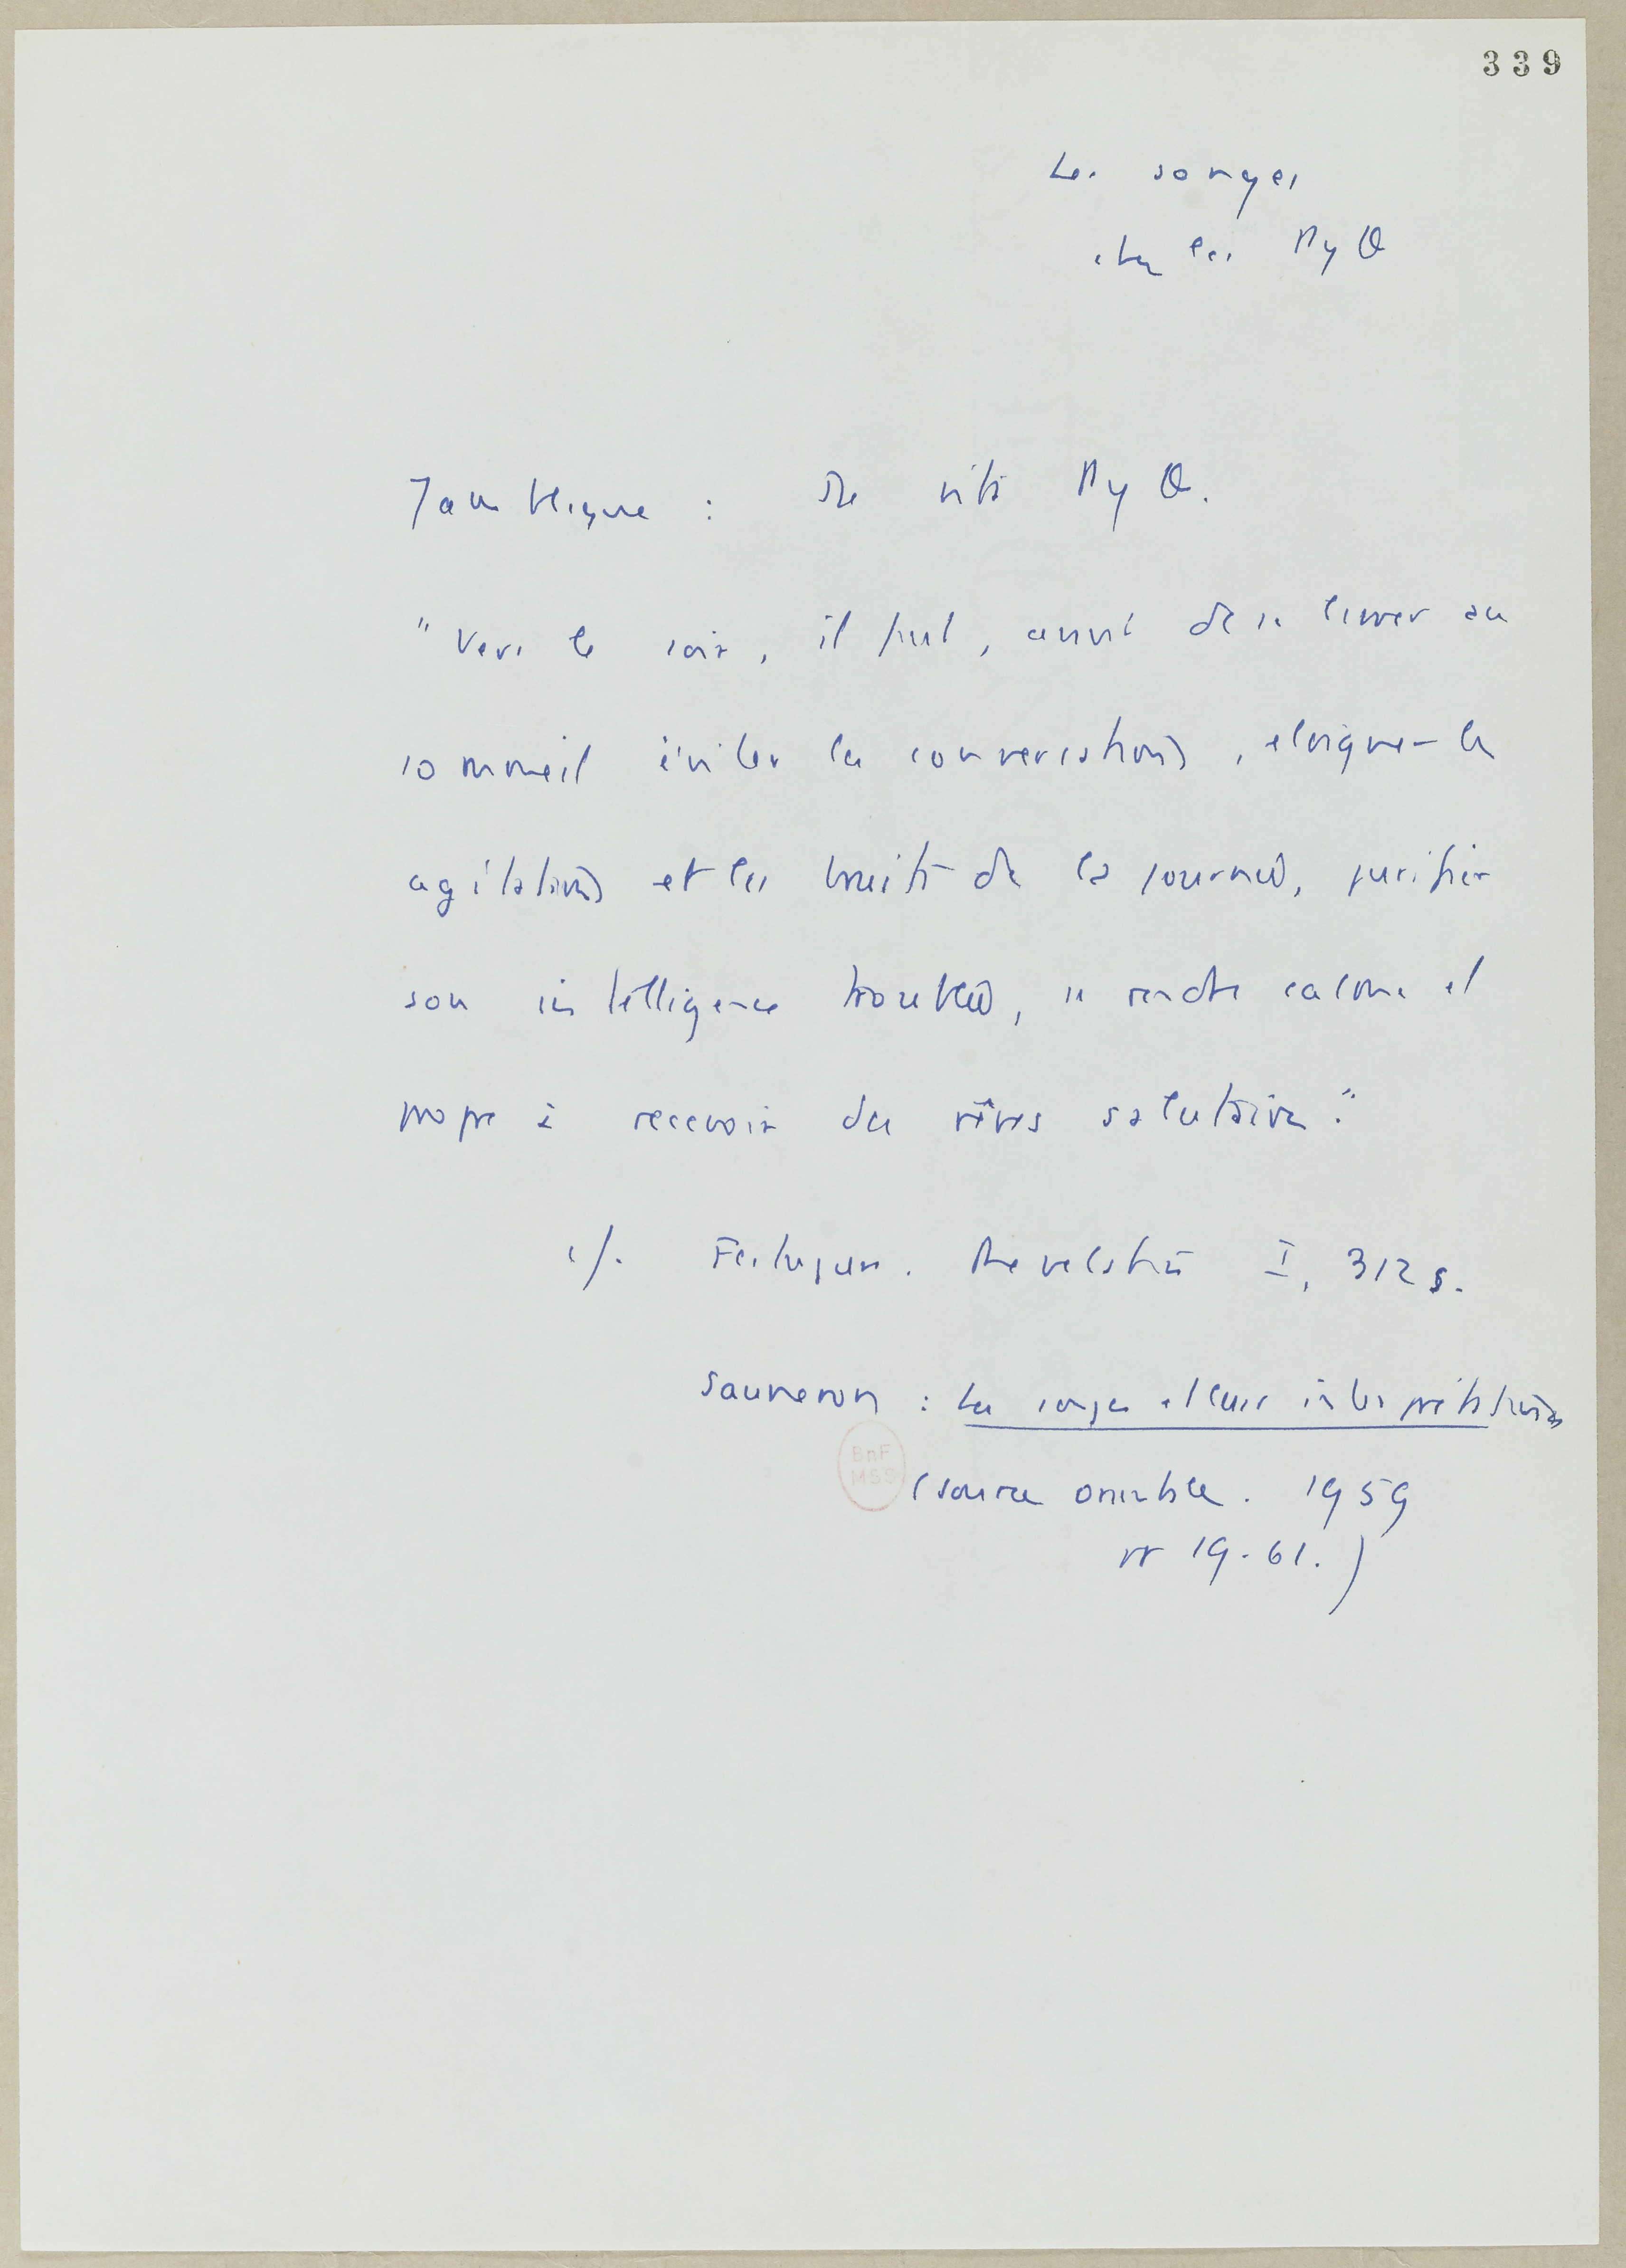 339
Les songes
chez les Pyθ
Jamblique : De vita Pyθ.
" Vers le soir, il faut, avant de se livrer au
sommeil éviter les conversations, eloigner les
agitations et les bruits de la journée, purifier
son intelligence troublée, se rendre calme et
propre à recevoir des rêves salutaires."
cf. Festugière. Revelation I, 312 s.
Sauneron : Les songes et leurs interprétations
(source orientales. 1959
pp 19-61.)
BnF
MSS